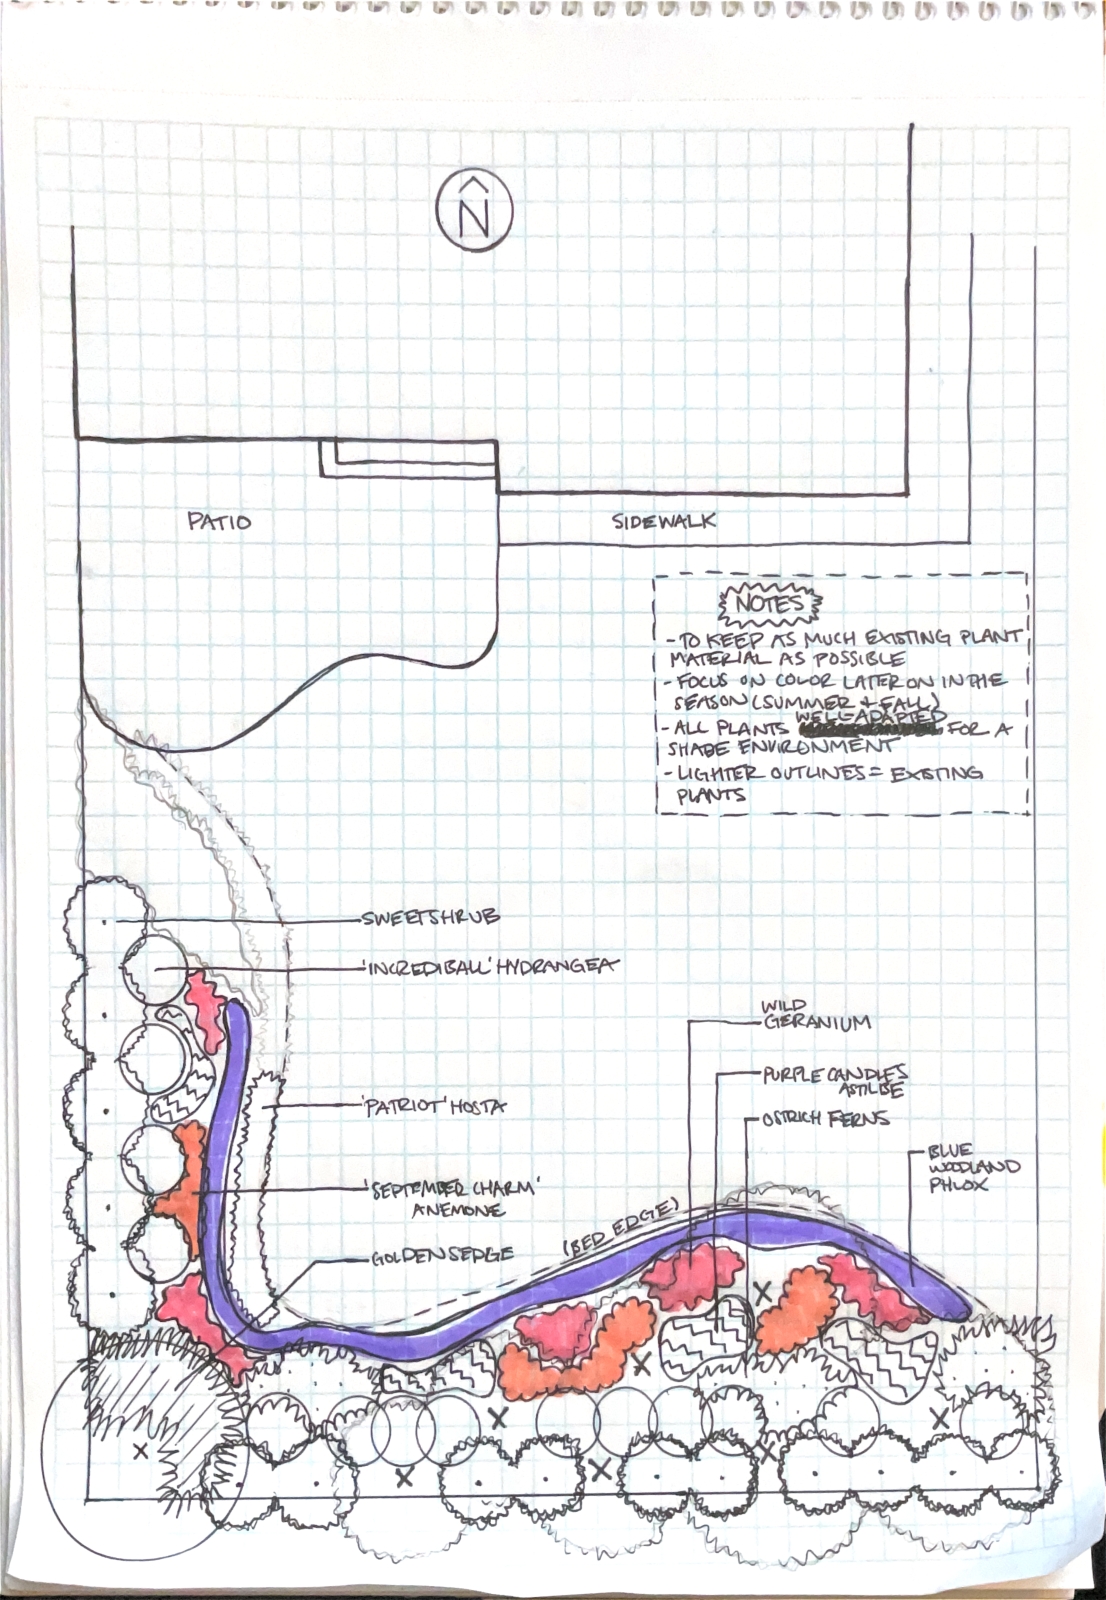 N
PATIO
SIDEWALK
NOTES
-TO KEEP AS MUCH EXISTING PLANT
MATERIAL AS POSSIBLE
-FOCUS ON COLOR LATER ON IN THE
SEASON (SUMMER & FALL)
WELL-ADAPTED
-ALL PLANTS FOR A
SHADE ENVIRONMENT
-LIGHTER OUTLINES = EXISTING
PLANTS
SWEETSHRUB
'INCREDIBALL' HYDRANGEA
WILD
GERANIUM
PURPLE CANDLES
ASTILBE
'PATRIOT' HOSTA
OSTRICH FERNS
BLUE
WOODLAND
PHLOX
'SEPTEMBER CHARM'
ANEMONE
(BED EDGE)
GOLDEN SEDGE